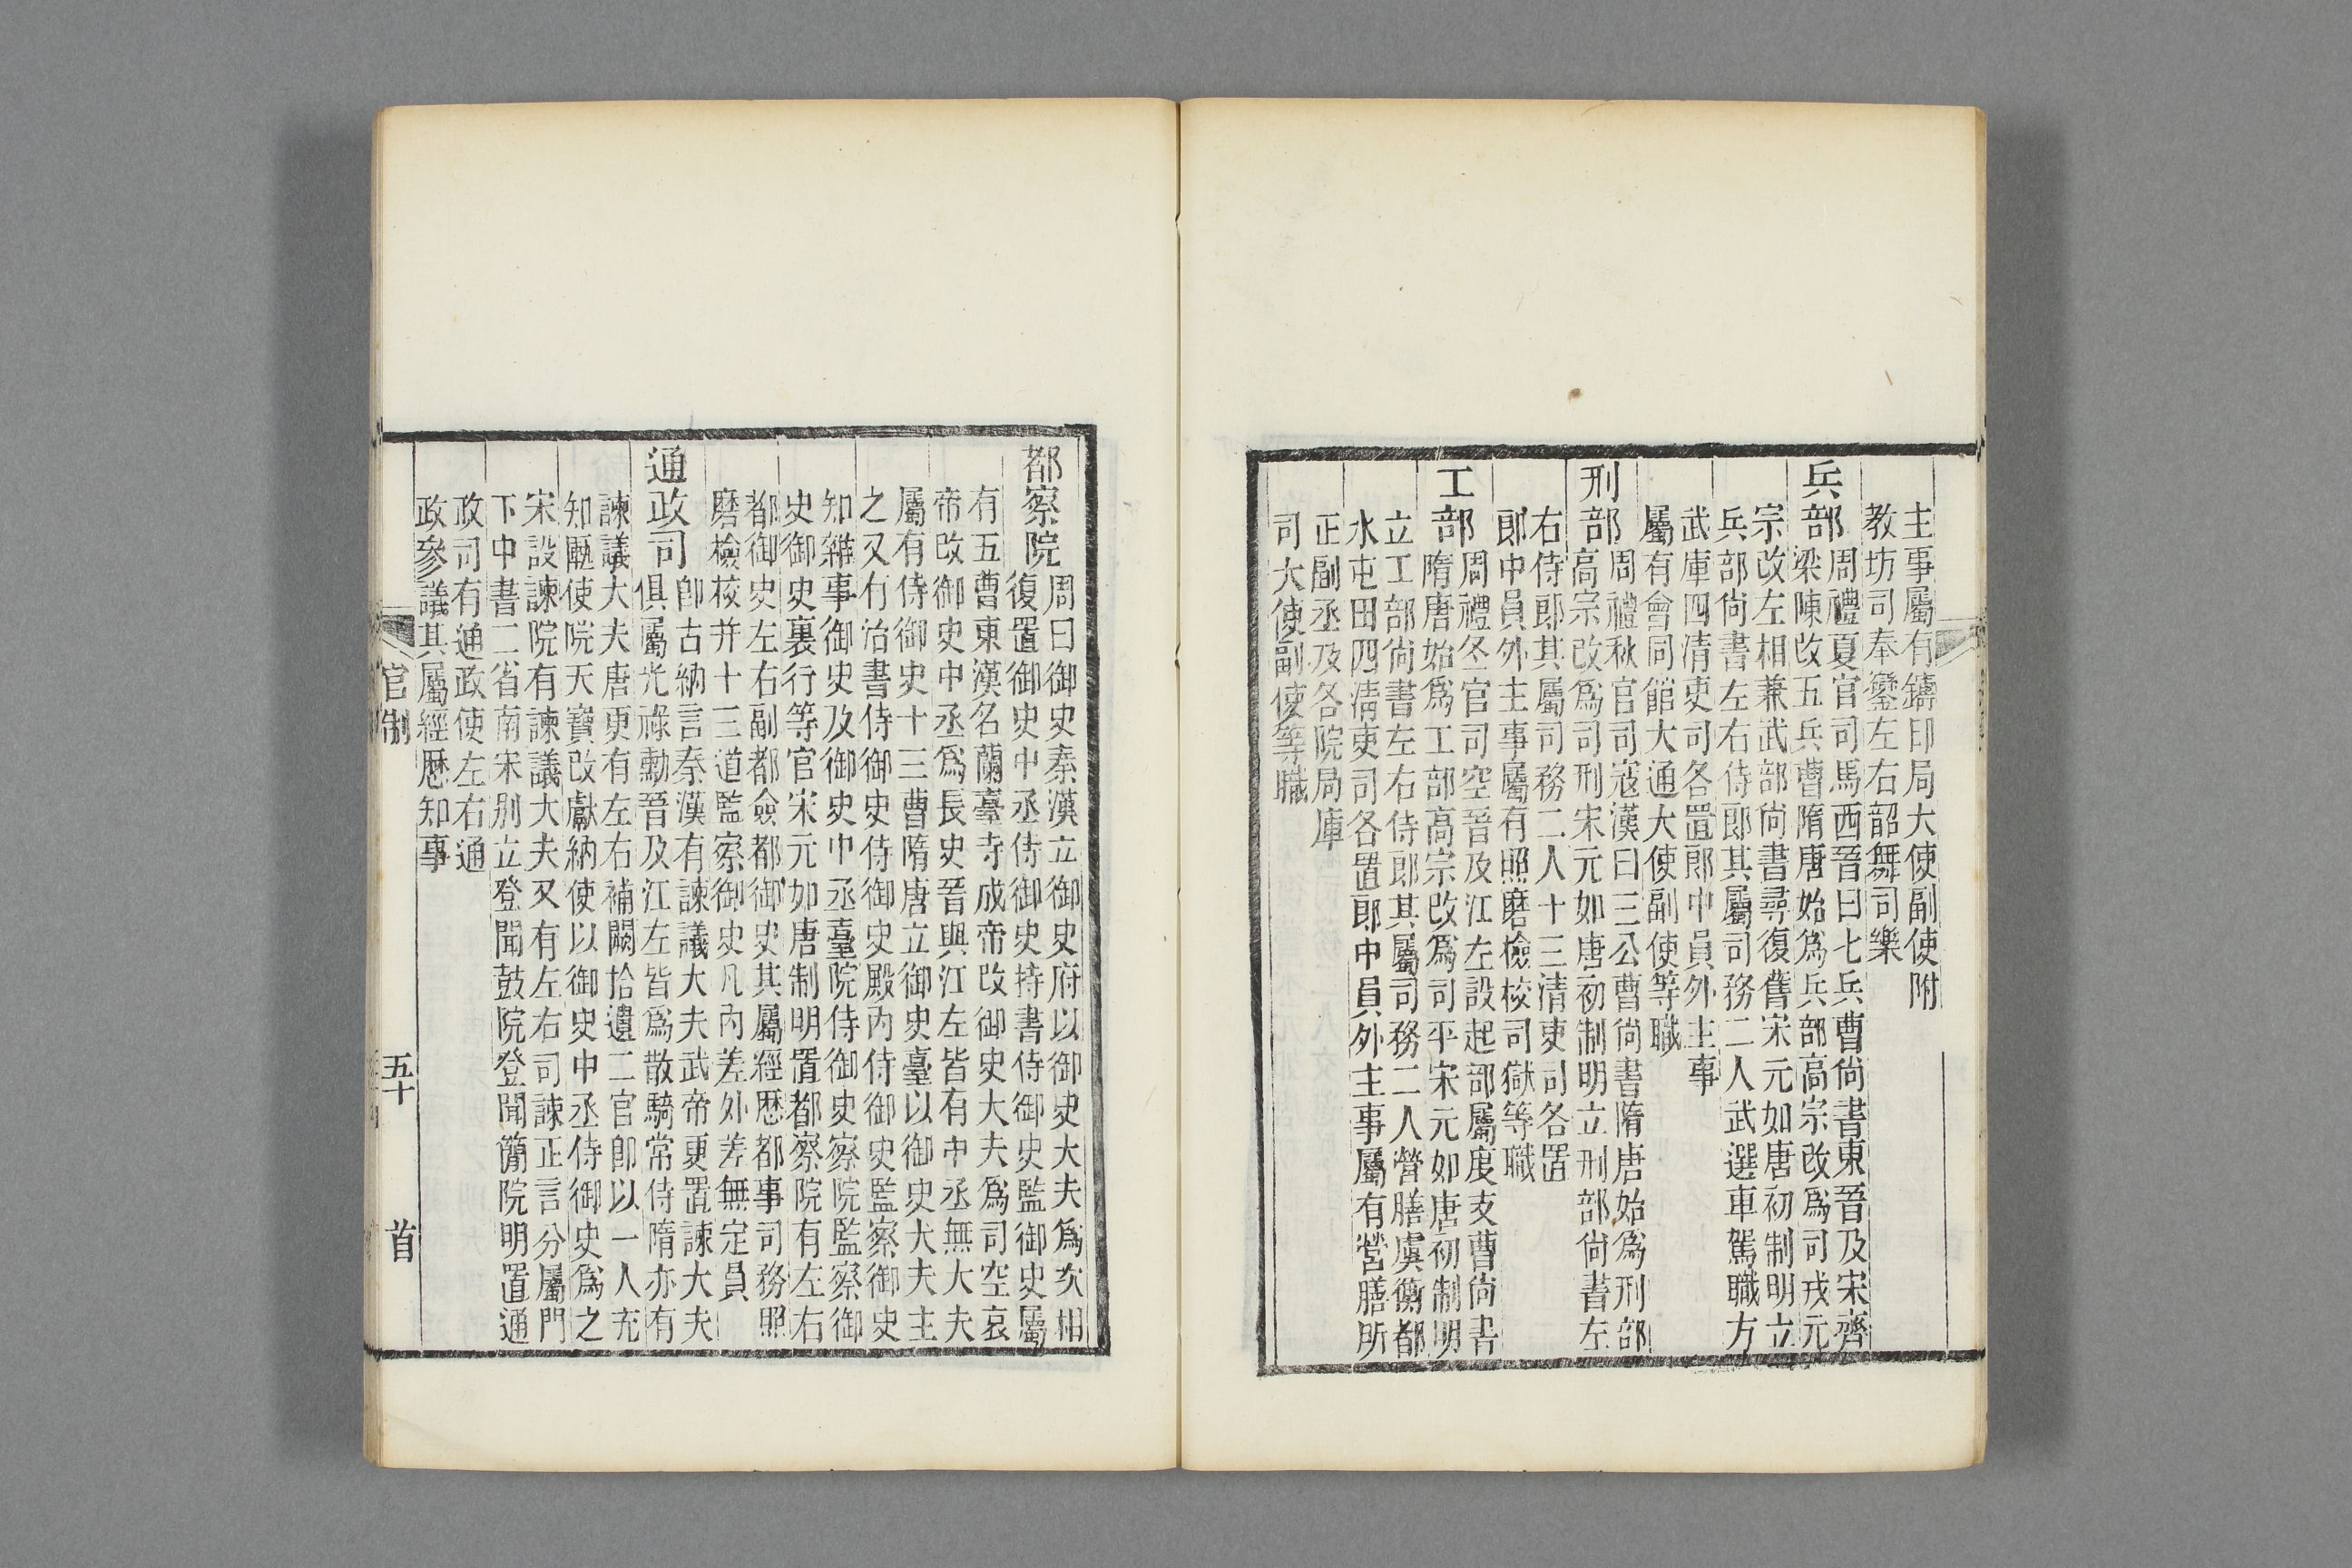 主事屬有鑄印局大使副使附
教坊司奉鑾左右韶舞司樂
兵部
周禮夏官司馬西晉曰七兵曹尚書東晉及宋齊
梁陳改五兵曹隋唐始爲兵部高宗改爲司戎元
宗改左相兼武部尚書尋復舊宋元如唐初制明立
兵部尚書左右侍郎其屬司務二人武選車駕職方
武庫四清吏司各置郎中員外主事
屬有會同館大通大使副使等職
刑部
周禮秋官司寇漢曰三公曹尚書隋唐始爲刑部
高宗改爲司刑宋元如唐初制明立刑部尚書左
右侍郎其屬司務二人十三清吏司各置
郎中員外主事屬有照磨檢校司獄等職
工部
周禮冬官司空晉及江左設起部屬度支曹尚書
隋唐始爲工部高宗改爲司平宋元如唐初制明
立工部尚書左右侍郎其屬司務二人營膳虞衡都
水屯田四清吏司各置郎中員外主事屬有營膳所
正副丞及各院局庫
司大使副使等職
都察院
周曰御史秦漢立御史府以御史大夫爲次相
復置御史中丞侍御史持書侍御史監御史屬
有五曹東漢名蘭臺寺成帝改御史大夫爲司空哀
帝改御史中丞爲長史晉與江左皆有中丞無大夫
屬有侍御史十三曹隋唐立御史臺以御史大夫主
之又有治書侍御史侍御史殿内侍御史監察御史
知雜事御史及御史中丞臺院侍御史察院監察御
史御史裏行等官宋元如唐制明置都察院有左右
都御史左右副都僉都御史其屬經歷都事司務照
磨檢校并十三道監察御史凡内差外差無定員
通政司
卽古納言秦漢有諫議大夫武帝更置諫大夫
俱屬光祿勳晉及江左皆爲散騎常侍隋亦有
諫議大夫唐更有左右補闕拾遺二官卽以一人充
知匭使院天寶改獻納使以御史中丞侍御史爲之
宋設諫院有諫議大夫又有左右司諫正言分屬門
下中書二省南宋别立登聞鼓院登聞簡院明置通
政司有通政使左右通
政參議其屬經歷知事
官制
五十
首